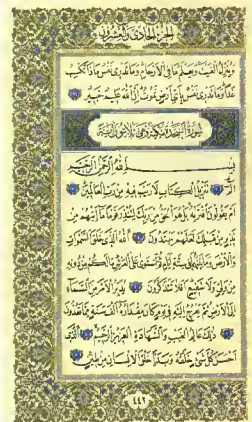 الجزء الحادي والعشرون
وينزل الغيث ويعلم ما في الأرحام وما تدري نفس ماذا تكسب
غدا وما تدري نفس بأي أرض تموت إن الله عليم خبير
سورة السجدة مكية وهي ثلاثون آية
بسم الله الرحمن الرحيم
الم تنزيل الكتاب لا ريب فيه من رب العالمين
أم يقولون افتراه بل هو الحق من ربك لتنذر قوما ما أتاهم من
نذير من قبلك لعلهم يهتدون الله الذي خلق السموات
والأرض وما بينهما في ستة أيام ثم استوى على العرش ما لكم من دونه
من ولي ولا شفيع أفلا تتذكرون يدبر الأمر من السماء
إلى الأرض ثم يعرج إليه في يوم كان مقداره ألف سنة مما تعدون
ذلك عالم الغيب والشهادة العزيز الرحيم الذي
أحسن كل شيء خلقه وبدأ خلق الإنسان من طين
٤٤٢